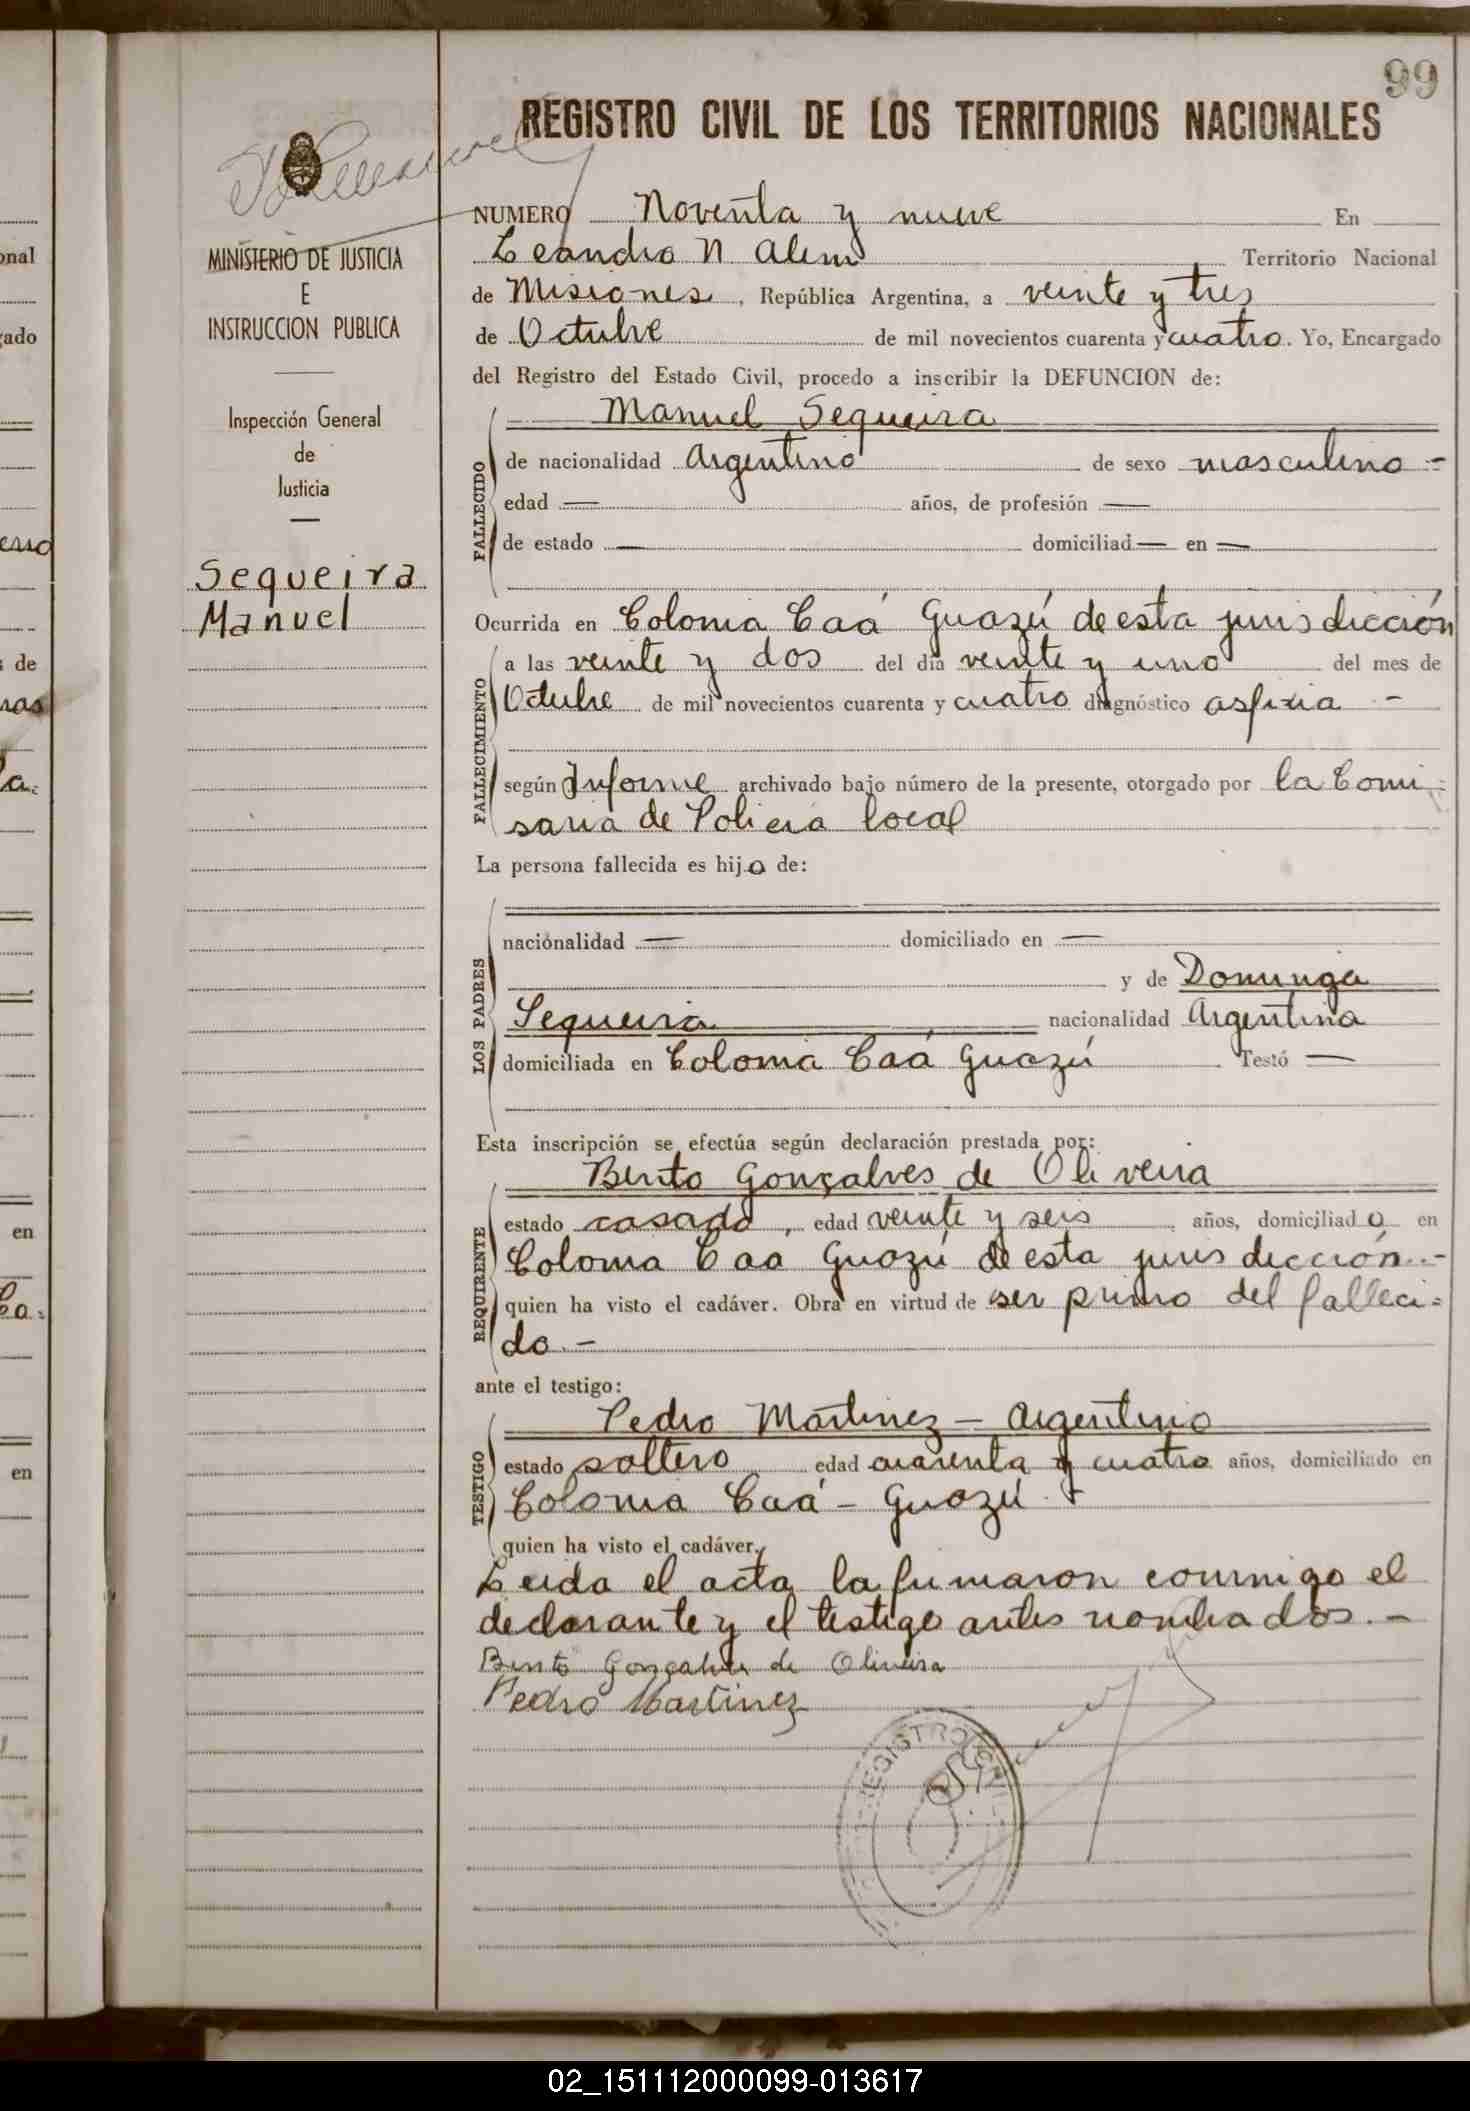 99
REGISTRO CIVIL DE LOS TERRITORIOS NACIONALES
NUMERO Noventa y nueve En
Leandro N Alem Territorio Nacional
de Misiones, República Argentina, a veinte y tres
de Octubre de mil novecientos cuarenta y cuatro. Yo, Encargado
del Registro del Estado Civil, procedo a inscribir la DEFUNCION de:
Manuel Sequeira
FALLECIDO
de nacionalidad Argentino de sexo masculino -
edad — años, de profesión —
de estado — domiciliad — en —
Ocurrida en Colonia Caá Guazú de esta jurisdicción
FALLECIMIENTO
a las veinte y dos del día veinte y uno del mes de
Octubre de mil novecientos cuarenta y cuatro diagnóstico asfixia -
según Informe archivado bajo número de la presente, otorgado por la Comi-
saria de Policia local
La persona fallecida es hijo de:
LOS PADRES
nacionalidad — domiciliado en —
y de Dominga
Sequeira nacionalidad Argentina
domiciliada en Colonia Caá Guazú Testó —
Esta inscripción se efectúa según declaración prestada por:
Bento Gonçalves de Oliveira
REQUIRENTE
estado casado, edad veinte y seis años, domiciliado en
Colonia Caa Guazú de esta jurisdicción.-
quien ha visto el cadáver. Obra en virtud de ser primo del falleci-
do.-
ante el testigo:
Pedro Martinez - Argentino
TESTIGO
estado soltero edad cuarenta y cuatro años, domiciliado en
Colonia Caá - Guazú.
quien ha visto el cadáver.
Leida el acta la firmaron conmigo el
declarante y el testigo antes nombrados.-
Bento Gonçalves de Oliveira
Pedro Martinez
REGISTRO CIVIL
MINISTERIO DE JUSTICIA
E
INSTRUCCION PUBLICA
Inspección General
de
Justicia
Sequeira
Manuel
onal
gado
de
en
en
02_151112000099-013617